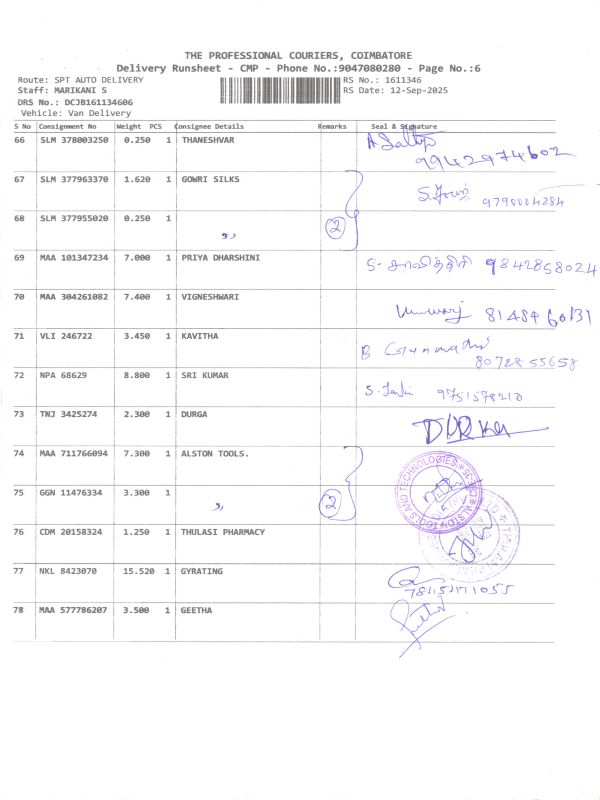 THE PROFESSIONAL COURIERS, COIMBATORE
Delivery Runsheet - CMP - Phone No.:9047080280 - Page No.:6
Route: SPT AUTO DELIVERY RS No.: 1611346
Staff: MARIKANI S RS Date: 12-Sep-2025
DRS No.: DCJB161134606
Vehicle: Van Delivery
S No Consignment No Weight PCS Consignee Details Remarks Seal & Signature
66 SLM 378003250 0.250 1 THANESHVAR
9942974602
67 SLM 377963370 1.620 1 GOWRI SILKS
9790004284
68 SLM 377955020 0.250 1 ,, 2
69 MAA 101347234 7.000 1 PRIYA DHARSHINI S. சாவித்திரி 9842858024
70 MAA 304261082 7.400 1 VIGNESHWARI
81484 60131
71 VLI 246722 3.450 1 KAVITHA
80728 55658
72 NPA 68629 8.800 1 SRI KUMAR
9751578210
73 TNJ 3425274 2.300 1 DURGA DURGA
74 MAA 711766094 7.300 1 ALSTON TOOLS.
ALSTON TOOLS AND TECHNOLOGIES
75 GGN 11476334 3.300 1 ,, 2
76 CDM 20158324 1.250 1 THULASI PHARMACY
77 NKL 8423070 15.520 1 GYRATING
78 MAA 577786207 3.500 1 GEETHA